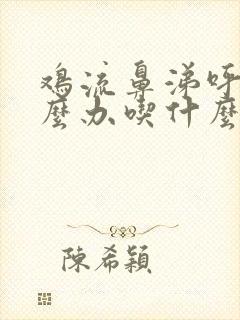 鸡流鼻涕呼
麼办喫什麼
陳希穎